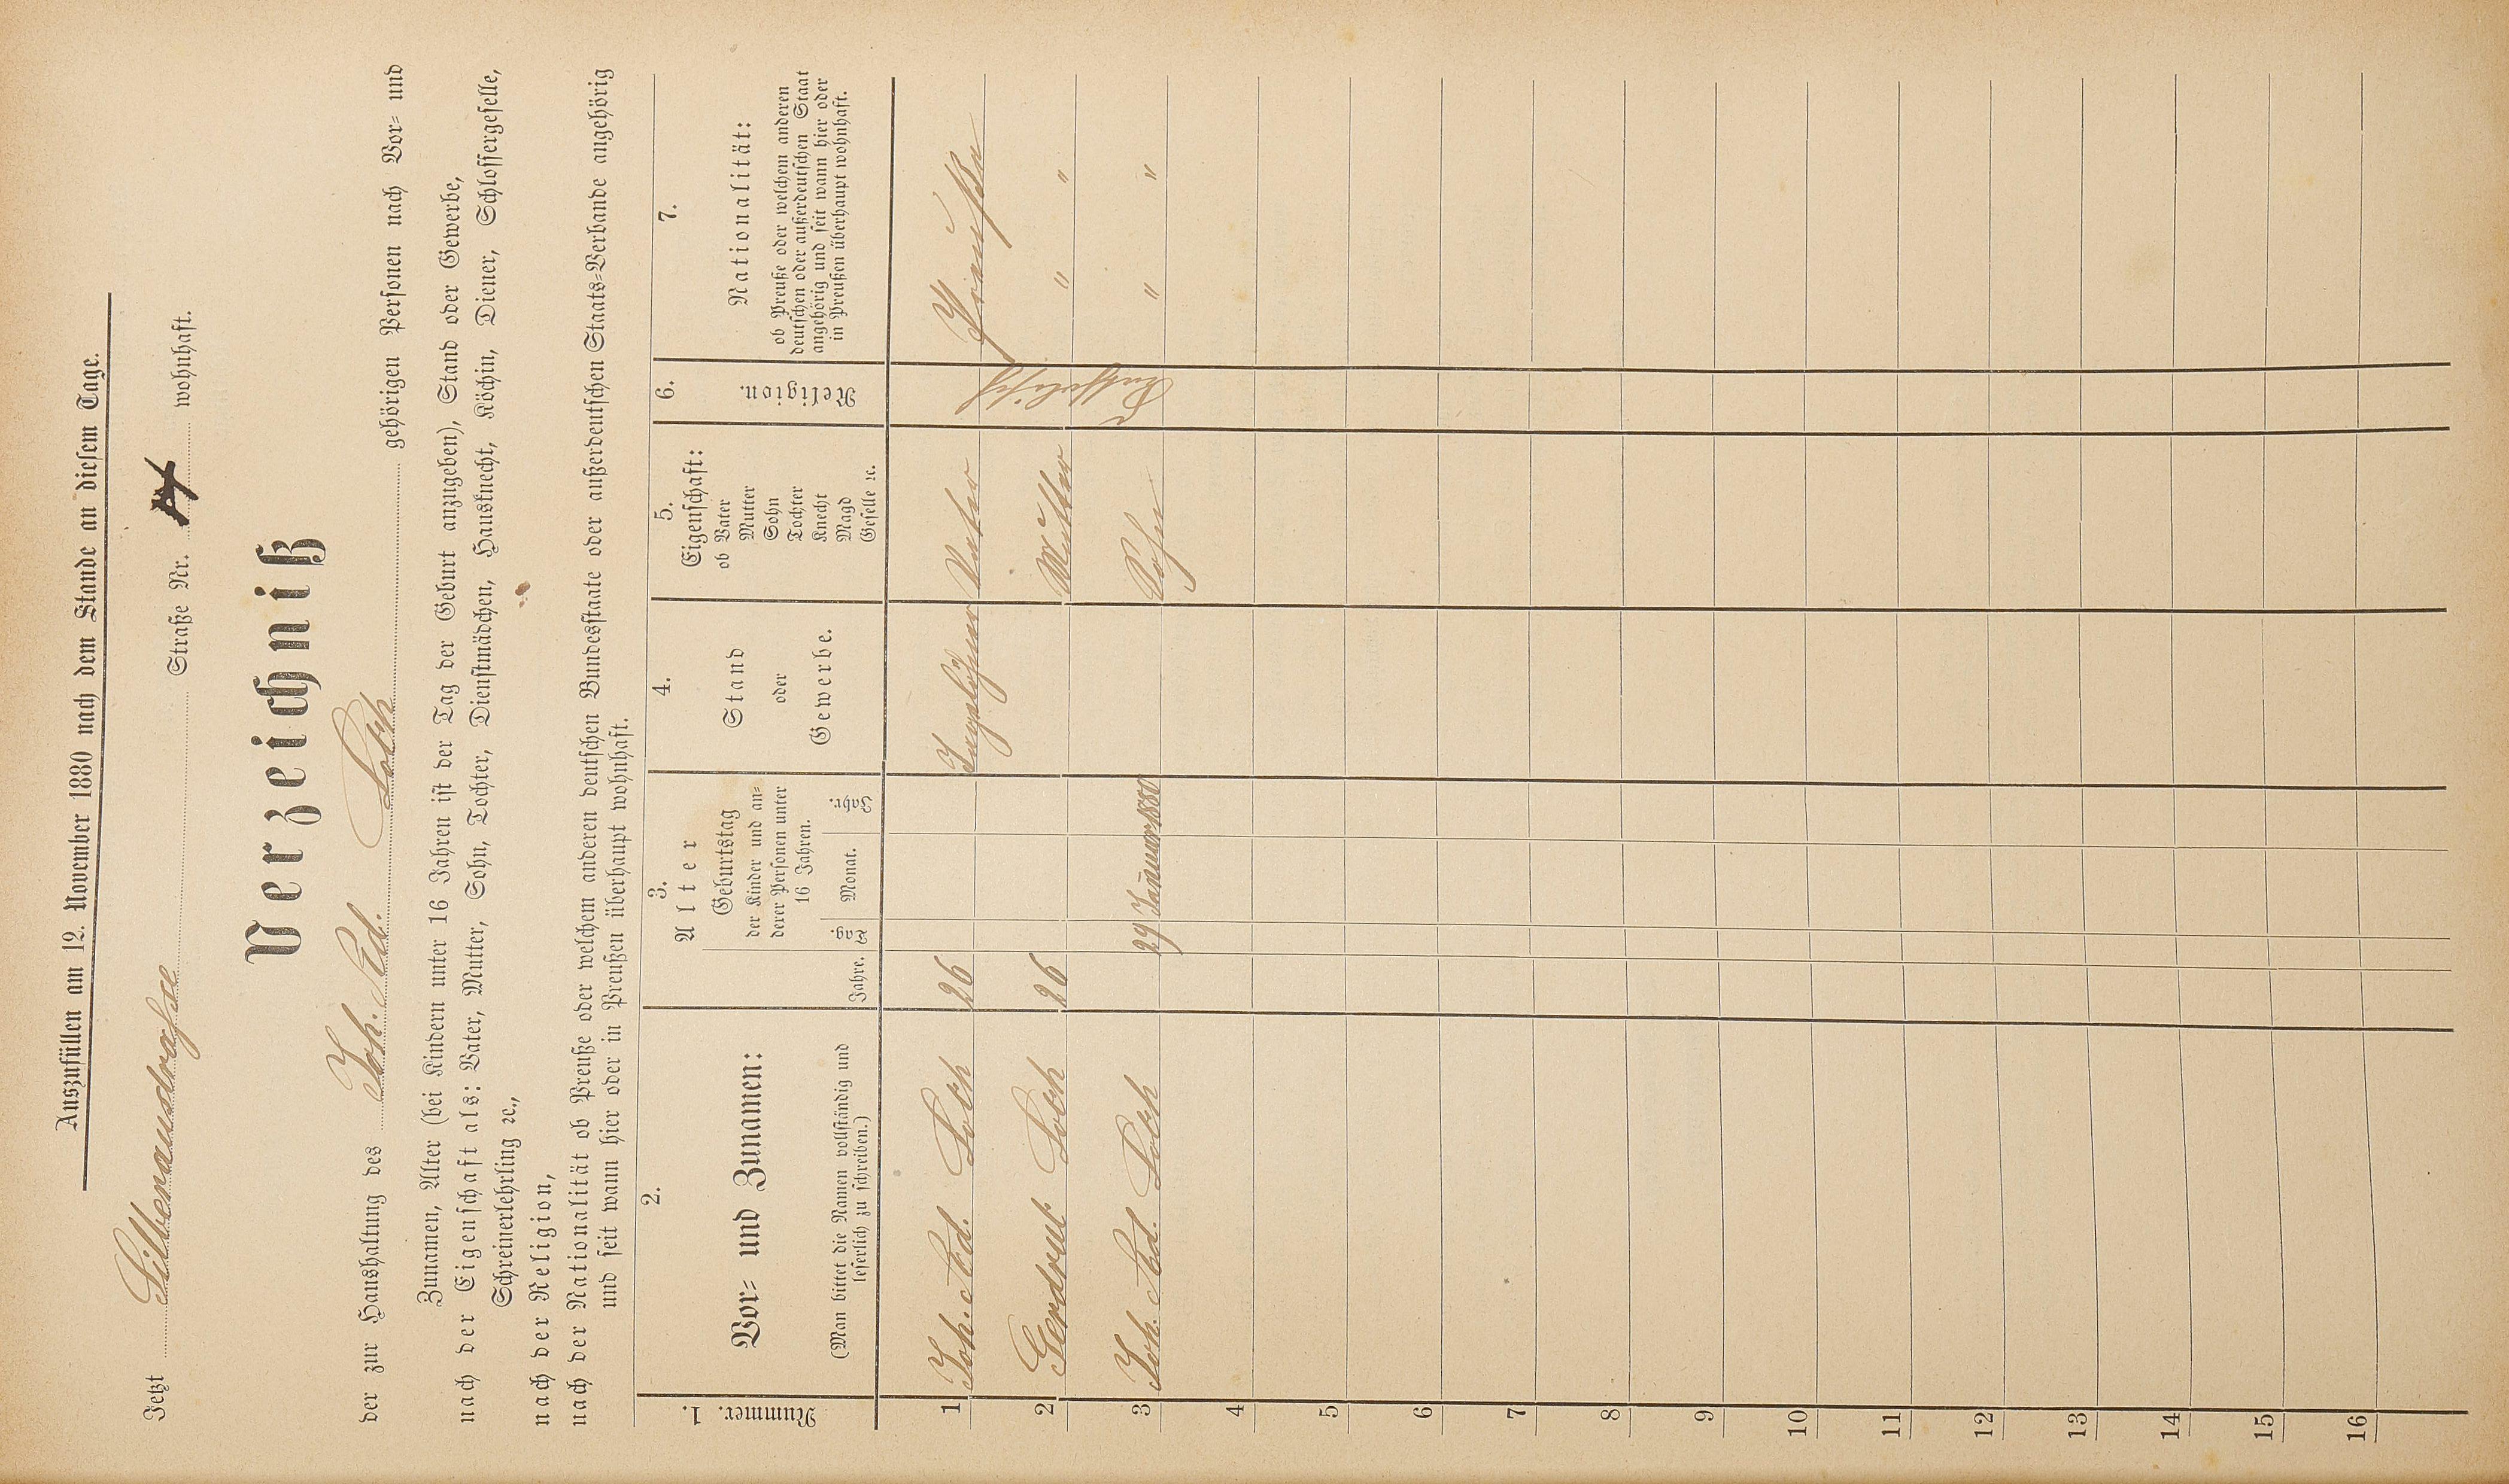 Auszufüllen am 12. November 1880 nach dem Stande an diesem Tage.
Jetzt Silberaudorafsce Straße Nr. wohnhaft.
Verzeichniß
der zur Haushaltung des Joh. Ad. Loth gehörigen Personen nach Vor= und
Zunamen, Alter (bei Kindern unter 16 Jahren ist der Tag der Geburt anzugeben), Stand oder Gewerbe,
nach der Eigenschaft als: Vater, Mutter, Sohn, Tochter, Dienstmädchen, Hausknecht, Köchin, Diener, Schlossergeselle,
Schreinerlehrling ꝛc.,
nach der Religion,
nach der Nationalität ob Preuße oder welchem anderen deutschen Bundesstaate oder außerdeutschen Staats=Verbande angehörig
und seit wann hier oder in Preußen überhaupt wohnhaft.
1. Nummer.
2. Vor= und Zunamen:
(Man bittet die Namen vollständig und
leserlich zu schreiben.)
3. Alter
Jahre.
Geburtstag
der Kinder und an=
derer Personen unter
16 Jahren.
Tag. Monat. Jahr.
4. Stand
oder
Gewerbe.
5. Eigenschaft:
ob Vater
Mutter
Sohn
Tochter
Knecht
Magd
Geselle ꝛc.
6. Religion.
7. Nationalität:
ob Preuße oder welchem anderen
deutschen oder außerdeutschen Staat
angehörig und seit wann hier oder
in Preußen überhaupt wohnhaft.
1 Joh. Ad. Loth 26 Tagelöhner Vater Katholisch Preußen
2 Gerdrut Loth 26 Mutter " "
3 Joh. Ad. Loth 29 Januar 1880 Sohn " "
4
5
6
7
8
9
10
11
12
13
14
15
16